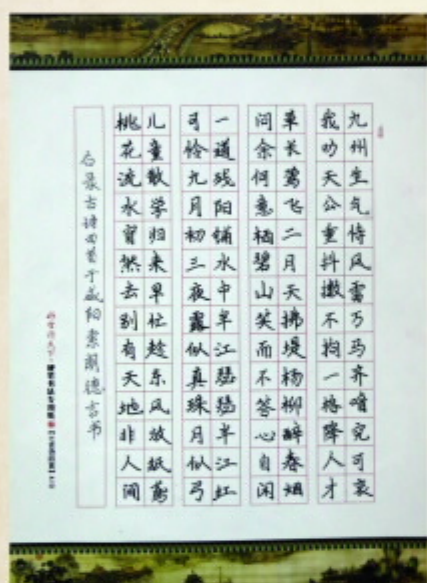 九州生气恃风雷万马齐喑究可哀
我劝天公重抖擞不拘一格降人才
草长莺飞二月天拂堤杨柳醉春烟
问余何意栖碧山笑而不答心自闲
一道残阳铺水中半江瑟瑟半江红
可怜九月初三夜露似真珠月似弓
儿童散学归来早忙趁东风放纸鸢
桃花流水窅然去别有天地非人间
右录古诗四首于咸阳书
硬笔书法专用纸